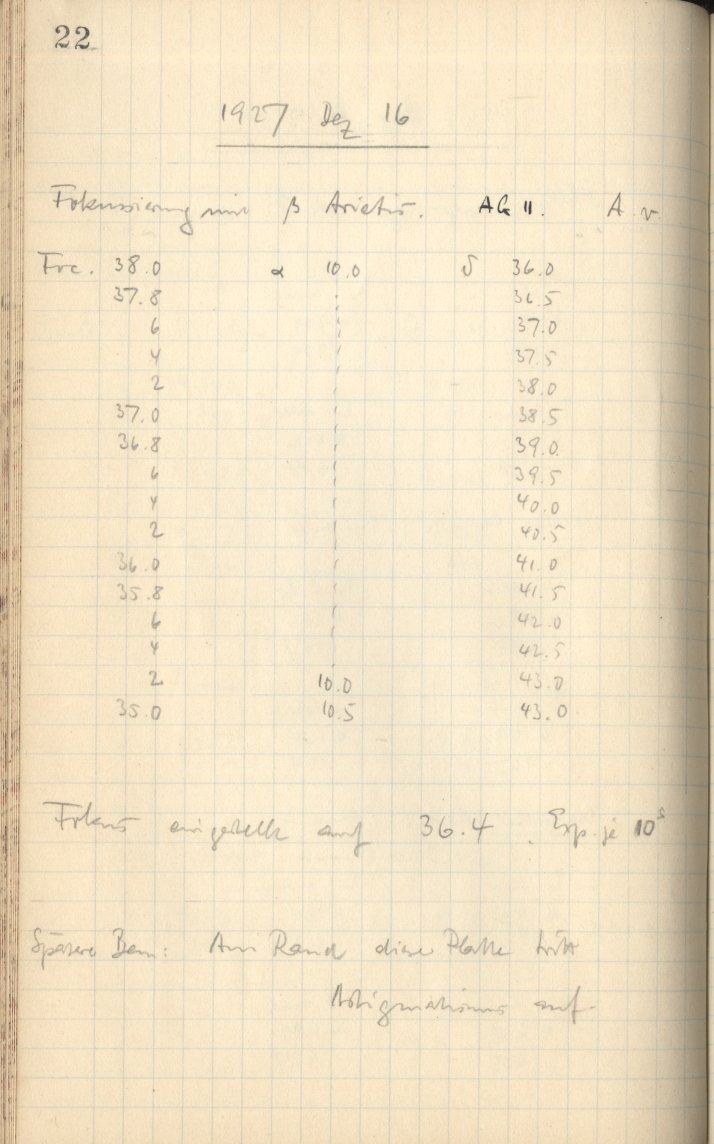 22
1927 Dez 16
Fokussierung mit β Arietis. AG II. A. v.
Foc. 38.0 α 10.0 δ 36.0
37.8 36.5
6 37.0
4 37.5
2 38.0
37.0 38.5
36.8 39.0
6 39.5
4 40.0
2 40.5
36.0 41.0
35.8 41.5
6 42.0
4 42.5
2 10.0 43.0
35.0 10.5 43.0
Fokus eingestellt auf 36.4. Exp. je 10s
Spätere Bem: Am Rand dieser Platte tritt
Astigmatismus auf.